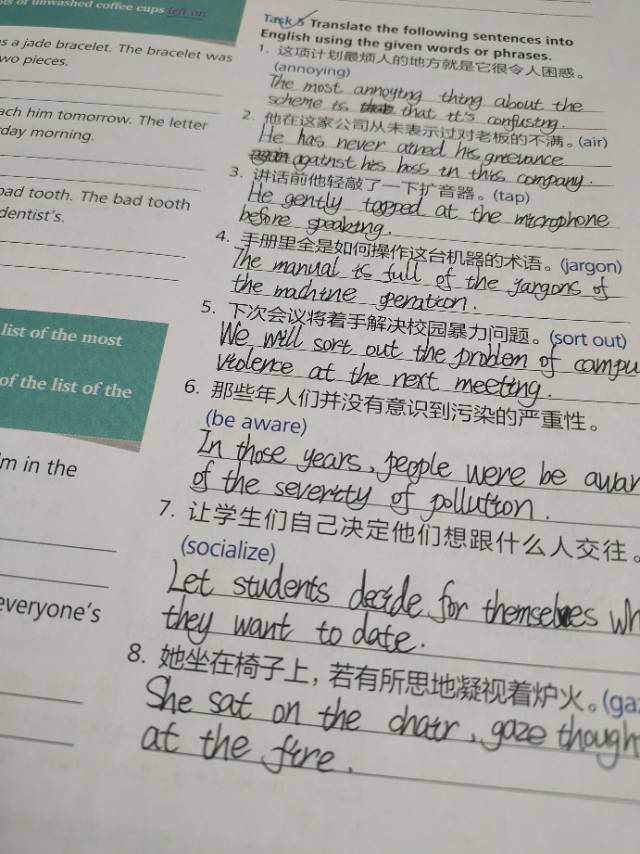 of unwashed coffee cups left on
s a jade bracelet. The bracelet was
wo pieces.
ach him tomorrow. The letter
day morning.
ad tooth. The bad tooth
dentist's.
list of the most
of the list of the
m in the
everyone's
Task 5 Translate the following sentences into
English using the given words or phrases.
1. 这项计划最烦人的地方就是它很令人困惑。
(annoying)
The most annoying thing about the
scheme is that it's confusing.
2. 他在这家公司从未表示过对老板的不满。(air)
He has never aired his grievance
against his boss in this company.
3. 讲话前他轻敲了一下扩音器。(tap)
He gently tapped at the microphone
before speaking.
4. 手册里全是如何操作这台机器的术语。(jargon)
The manual is full of the jargons of
the machine operation.
5. 下次会议将着手解决校园暴力问题。(sort out)
We will sort out the problem of campu
violence at the next meeting.
6. 那些年人们并没有意识到污染的严重性。
(be aware)
In those years, people were be awar
of the severity of pollution.
7. 让学生们自己决定他们想跟什么人交往。
(socialize)
Let students decide for themselves wh
they want to date.
8. 她坐在椅子上，若有所思地凝视着炉火。(ga
She sat on the chair, gaze though
at the fire.